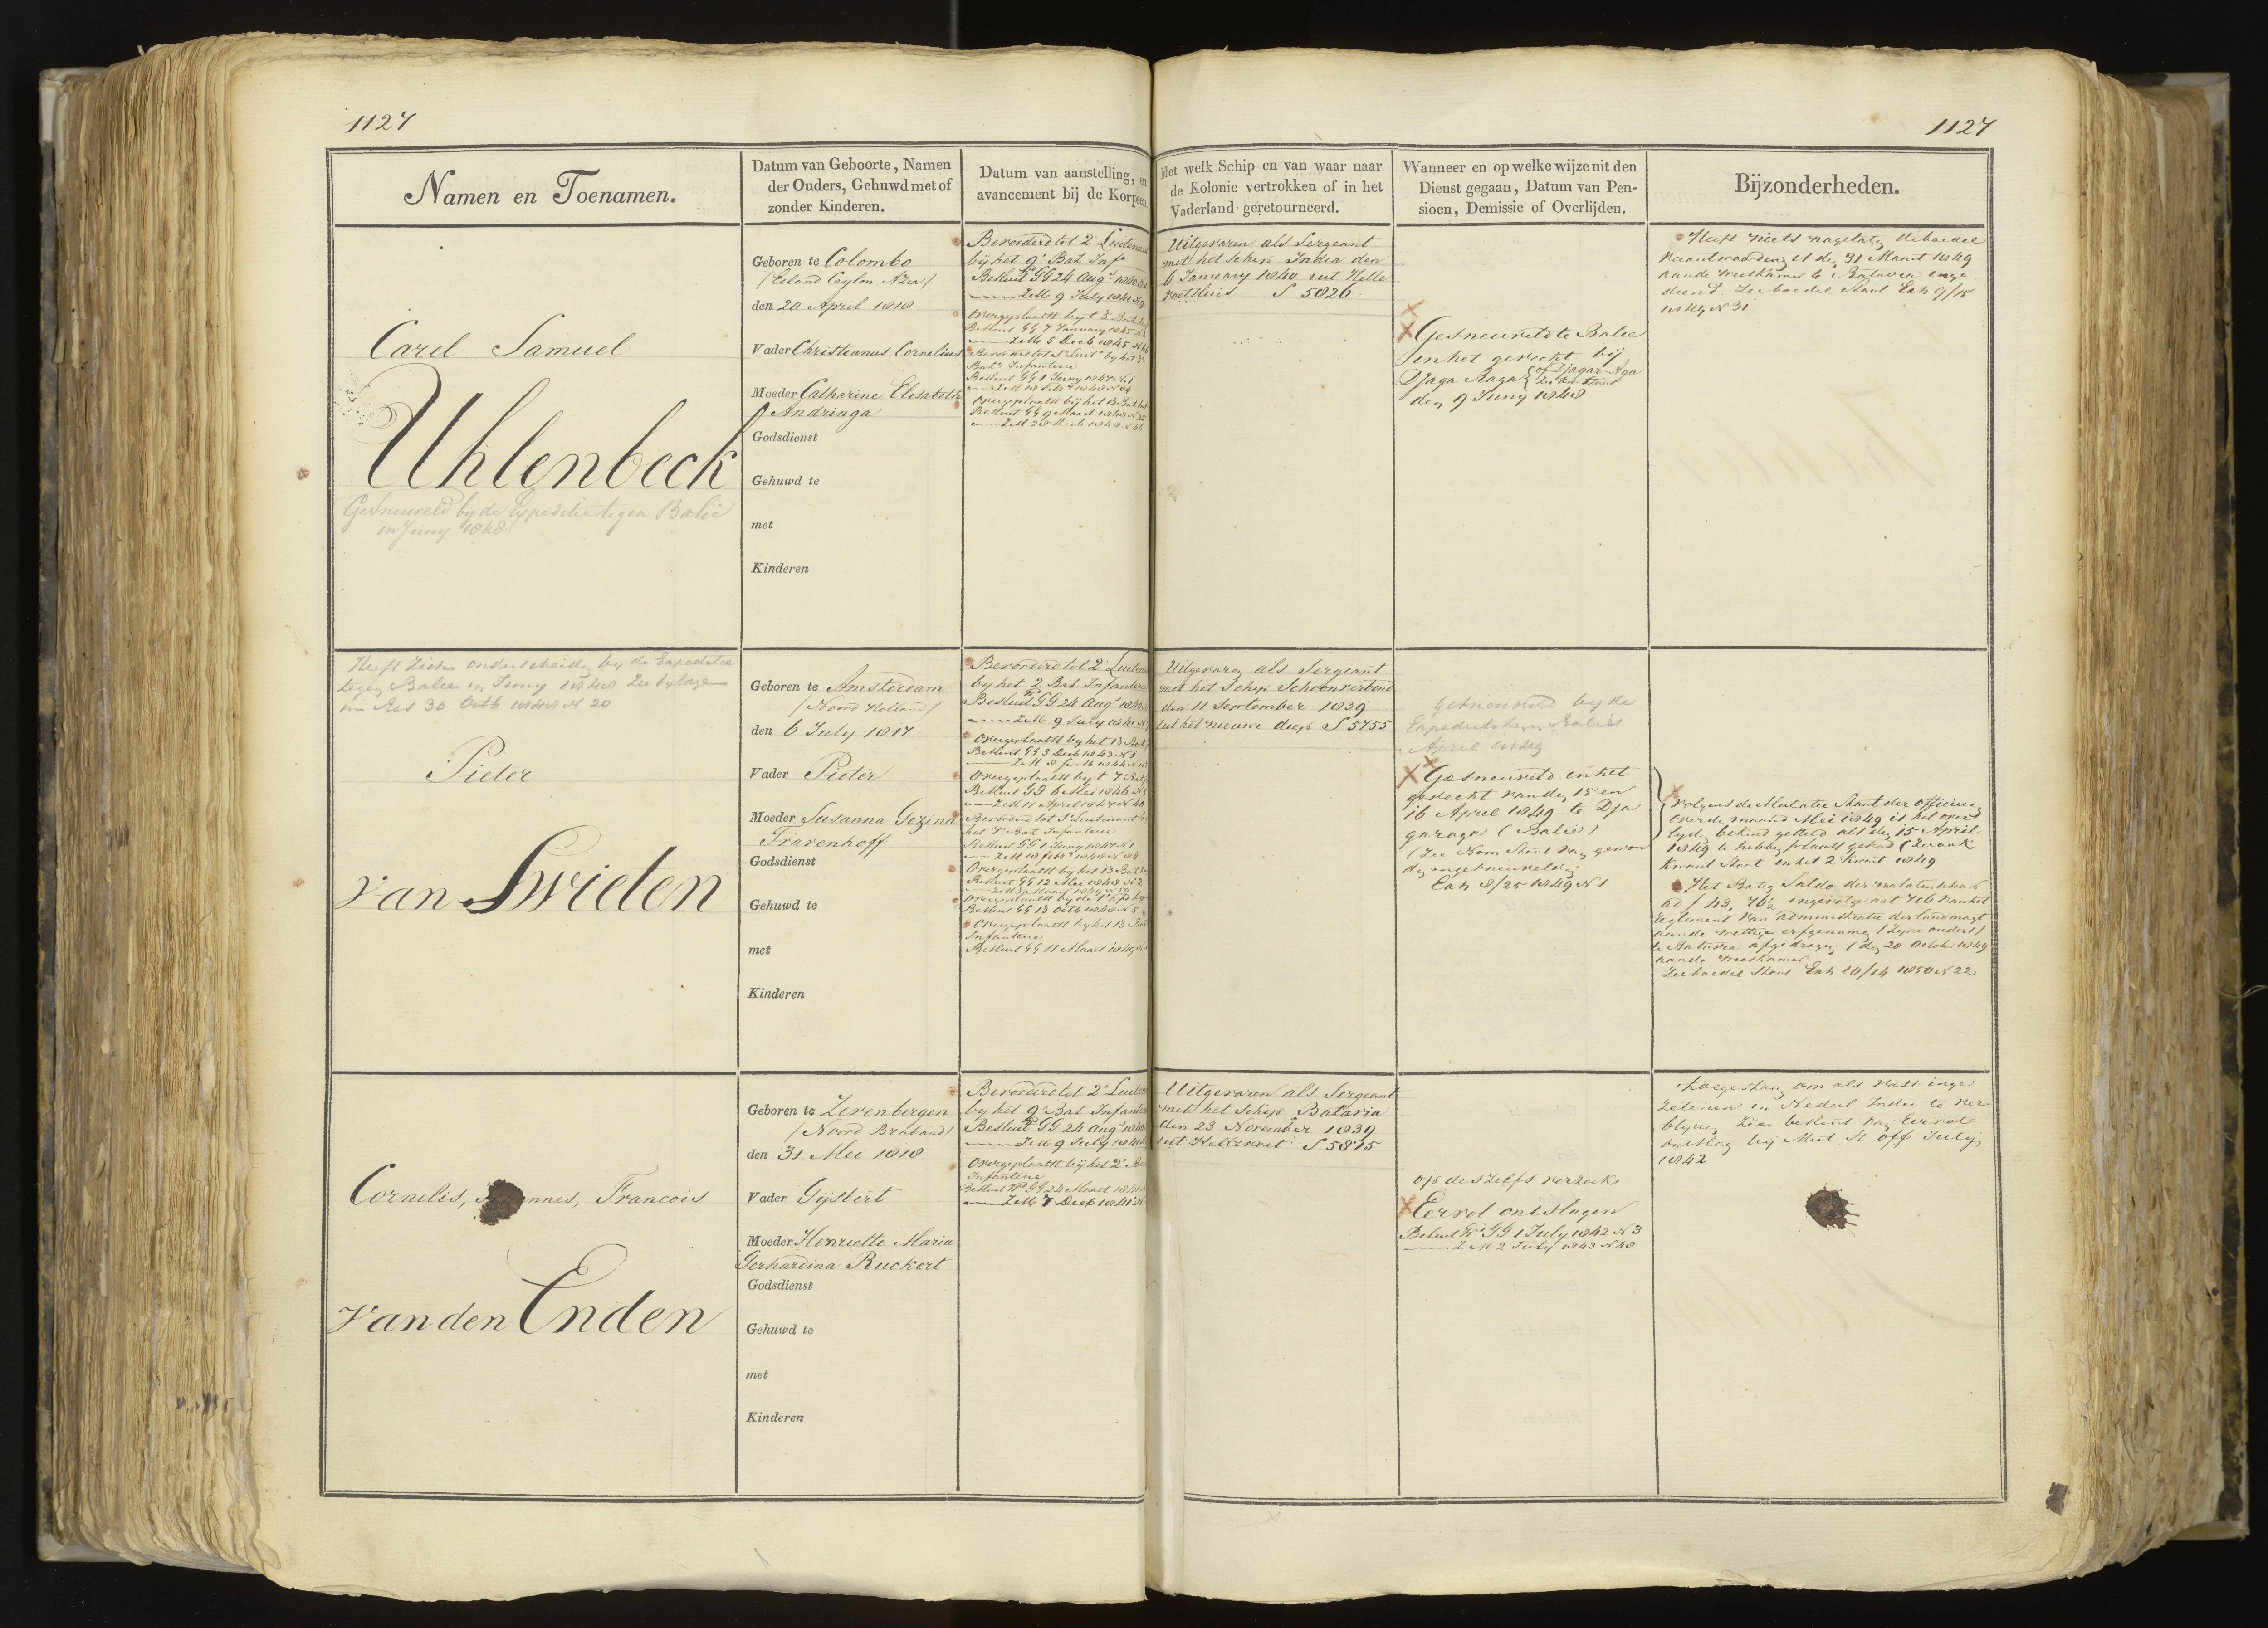 1127
1127
Namen en Toenamen.
Datum van Geboorte, Namen
der Ouders, Gehuwd met of
zonder Kinderen.
Datum van aanstelling, en
avancement bij de Korpsen.
Met welk Schip en van waar naar
de Kolonie vertrokken of in het
Vaderland geretourneerd.
Wanneer en op welke wijze uit den
Dienst gegaan, Datum van Pen-
sioen, Demissie of Overlijden.
Bijzonderheden.
Carel Samuel
Uhlenbeck
Gesneuveld bij de Expeditie tegen Balie
in Juny 1848
Geboren te Colombo
(Eiland Ceylon Azia)
den 20 April 1818
Vader Christianus Cornelius
Moeder Catharine Elisabeth
Andringa
Godsdienst
Gehuwd te
met
Kinderen
Bevorderd tot 2e Luitenant
bij het 9e Bat Infe
Besluit GG 24 Augt 1840
ZM 9 July 1841
Overgeplaatst by t 3e Bat
Besluit GG 7 January 1845
ZM 5 Decb 1845
Bevorderd tot 1e Luit by het 3e
Bat Infanterie
Besluit GG 1 Juny 1847 N 1
ZM 18 Febr 1848 N 84
Overgeplaatst bij het 13 Bat
Besluit GG 9 Maart 1848
Uitgevaren als Sergeant
met het Schip India den
6 January 1840 uit Helle
voetsluis S 5826
Gesneuveld te Balie
in het gevecht bij
Djaga Raga of Djagar-Aga
den 9 Juny 1848
Heeft niets nagelaten de boedel
verantwoording is den 31 Maart 1849
aan de weeskamer te Batavia inge
diend. Zie boedel Staat Exh 9/15
N 31
Heeft zich onderscheiden by de Expeditie
tegen Balie in Juny 1848 Zie bylage
30 Octb 1848 N 20
Pieter
van Swieten
Geboren te Amsterdam
(Noord Holland)
den 6 July 1817
Vader Pieter
Moeder Susanna Gezina
Travenhoff
Godsdienst
Gehuwd te
met
Kinderen
Bevorderd tot 2e Luitenant
bij het 2 Bat Infanterie
Besluit GG 24 Augt 1840
ZM 9 July 1841
Overgeplaatst by het 13 Bat
Besluit GG 3 Decb 1843 N 1
Overgeplaatst by t 7e Bat
Besluit GG 6 Mei 1846
ZM 11 April 1847 N 40
Bevorderd tot 1e Luitenant by
het 7e Bat Infanterie
Besluit GG 1 Juny 1847 N 1
ZM 18 febr 1848 N 84
Overgeplaatst bij het 13 Bat
Besluit GG 12 Mei 1848 N 2
Besluit GG 13 Octb 1848 N 5
Overgeplaatst by het 13 Bat
Infanterie
Besluit GG 11 Maart 1849
Uitgevaren als Sergeant
met het Schip Schoonverbond
den 11 September 1839
uit het nieuwe diep S 5755
gesneuveld by de
Expeditie tegen Balie
April 1849
Gesneuveld in het
gevecht van den 15 en
16 April 1849 te Dja
garaga (Balie)
(Zie Nom Staat van gewon
den en gesneuvelden
Exh 8/25 1849 N 1
volgens de Mutatie Staat der officieren
over de maand Mei 1849 is het over
lyden bekend gesteld als den 15 April
1849 te hebben plaats gehad (Zie ook
Kwart Staat in het 2e Kwart 1849
Het Batig Saldo der nalatenschap
ad f 43,76½ ingevolge art 706 van het
reglement van administratie der landmagt
aan de wettige erfgenamen (Zyne ouders)
te Batavia afgedragen (den 20 October 1849
aan de weeskamer
Zie boedel Staat Exh 10/14 1850 N 22
Cornelis, nnes, Francois
van den Enden
Geboren te Zevenbergen
(Noord Braband)
den 31 Mei 1818
Vader Gijsbert
Moeder Henriette Maria
Gerhardina Ruckert
Godsdienst
Gehuwd te
met
Kinderen
Bevorderd tot 2e Luitenant
by het 9e Bat Infanterie
Besluit GG 24 Augt 1840
ZM 9 July 1841
Overgeplaatst bij het 2e Bat
Infanterie
Besluit GG 24 Maart 1841
ZM 7 Decb 1841
Uitgevaren als Sergeant
met het Schip Batavia
den 23 November 1839
uit Hellevoet S 5815
op deszelfs verzoek
Eervol ontslagen
Besluit GG 1 July 1842 N 3
ZM 2 July 1843 N 48
toegestaan om als vast inge
zetenen in Nederl Indie te ver
blyven Zie besluit van Eervol
ontslag bij Mut St off July
1842